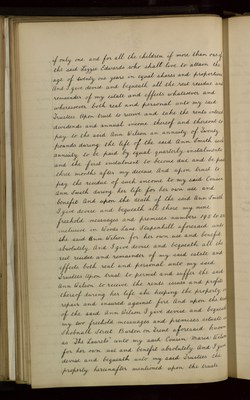 if only one and for all the children if more than one of
the said Lizzie Edwards who shall live to attain the
age of twenty one years in equal shares and proportions
And I give devise and bequeath all the rest residue and
remainder of my estate and effects whatsoever and
wheresoever both real and personal unto my said
Trustees Upon trust to receive and take the rents interest
dividends and annual income thereof and thereout to
pay to the said Ann Wilson an annuity of Twenty
pounds during the life of the said Ann Smith such
annuity to be paid by equal quarterly instalments
and the first instalment to become due and be paid
three months after my decease And upon trust to
pay the residue of such income to my said Cousin
Ann Smith during her life for her own use and
benefit And upon the death of the said Ann Smith
I give devise and bequeath all those my nine
freehold messuages and premises numbers
inclusive in Woods Lane Stapenhill aforesaid unto
the said Ann Wilson for her own use and benefit
absolutely And I give devise and bequeath all the
rest residue and remainder of my said estate and
effects both real and personal unto my said
Trustees Upon trust to permit and suffer the said
Ann Wilson to receive the rents income and profits
thereof during her life she keeping the property in
repair and insured against fire And upon the death
of the said Ann Wilson I give devise and bequeath
my two freehold messuages and premises situate in
Shobnall Street Burton on Trent aforesaid known
as "The Laurels" unto my said Cousin Maria Wilson
for her own use and benefit absolutely And I give
devise and bequeath unto my said Trustees the
property hereinafter mentioned upon the trusts